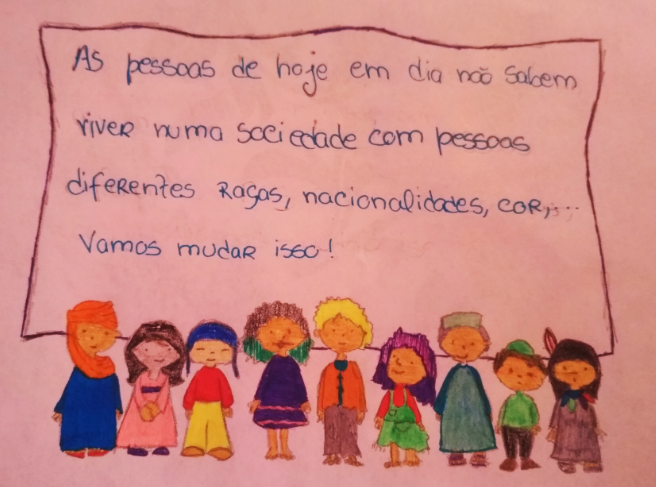 As pessoas de hoje em dia não sabem
viver numa sociedade com pessoas
diferentes Raças, nacionalidades, cor,...
Vamos mudar isso!